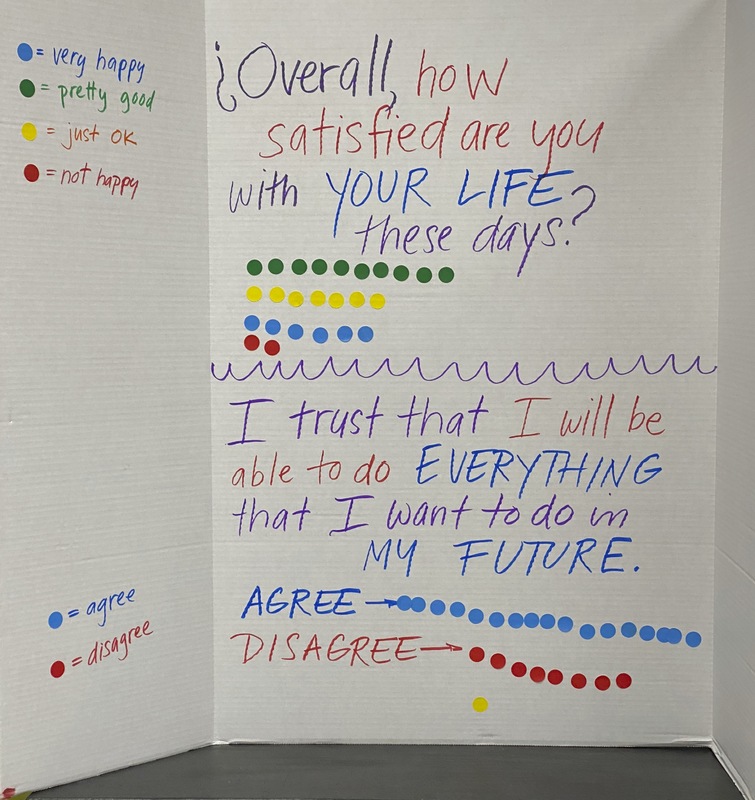 = very happy
= pretty good
= just OK
= not happy
¿Overall, how
satisfied are you
with YOUR LIFE
these days?
I trust that I will be
able to do EVERYTHING
that I want to do in
MY FUTURE.
= agree
= disagree
AGREE →
DISAGREE →